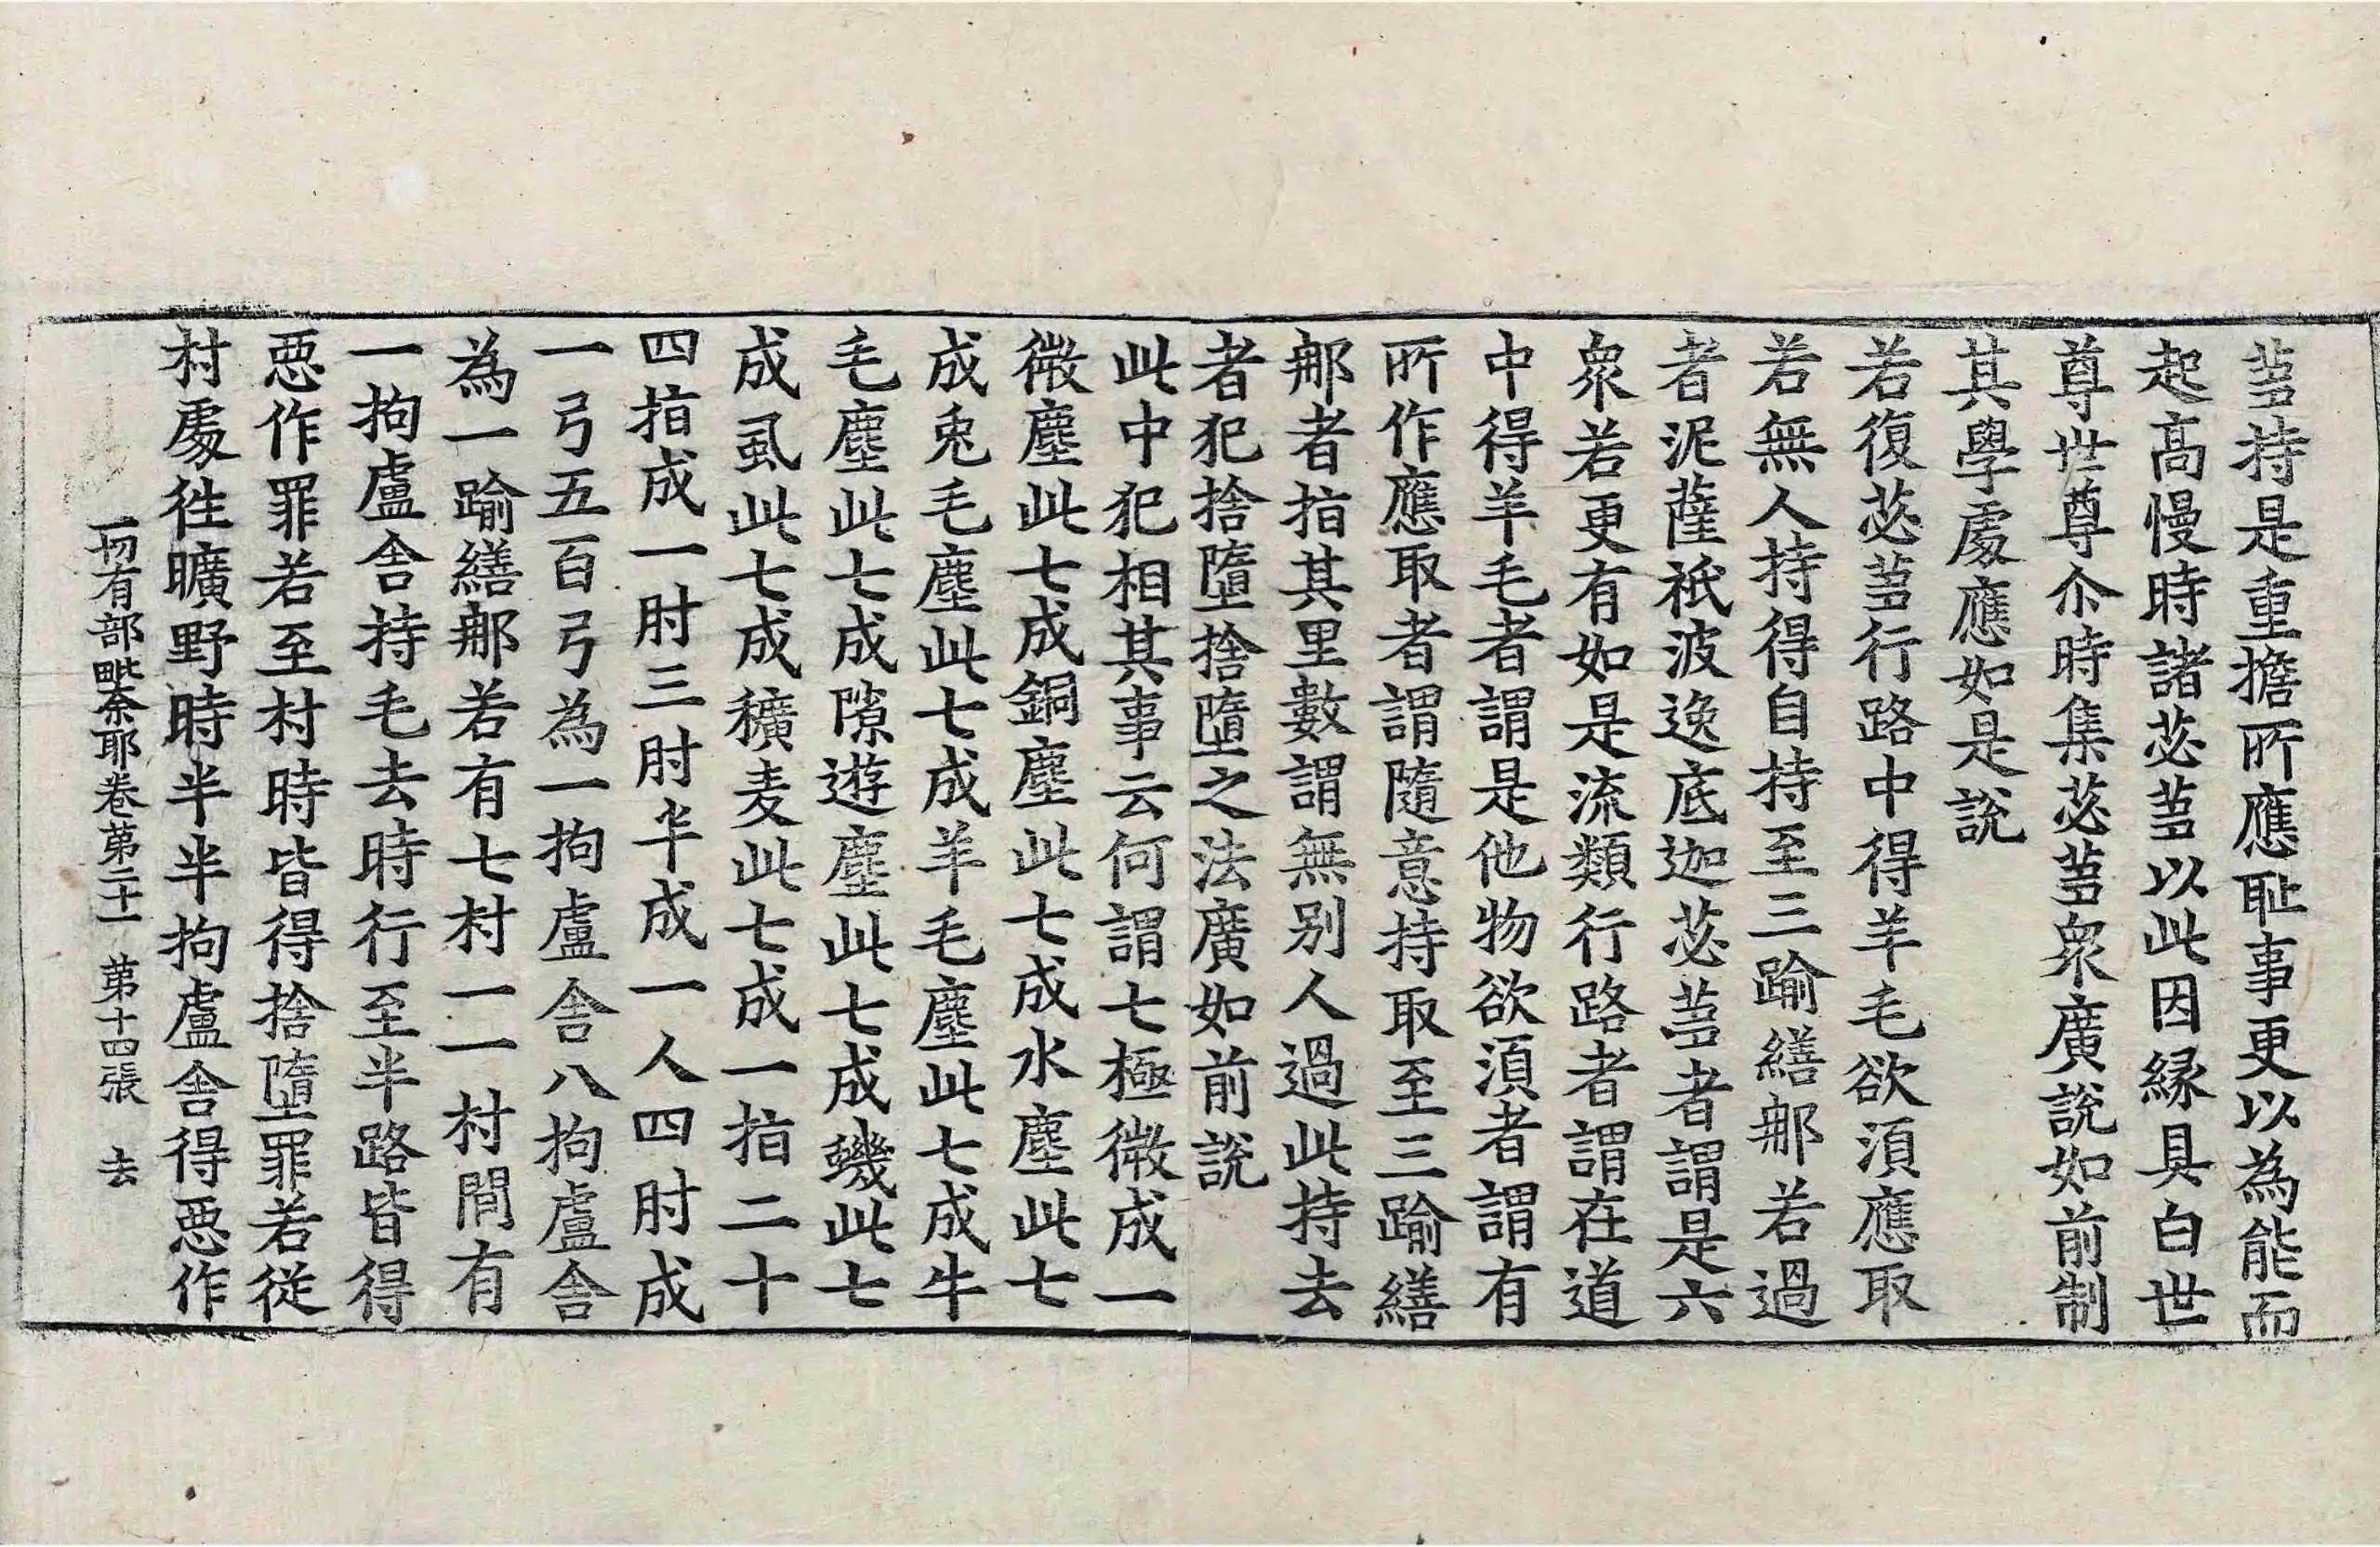 蒭持是重擔所應恥事更以為能而
起高慢時諸苾蒭以此因縁具白世
尊世尊尒時集苾蒭衆廣說如前制
其學處應如是說
若復苾蒭行路中得羊毛欲湏應取
若無人持得自持至三踰繕那若過
者泥薩祇波逸底迦苾蒭者謂是六
衆若更有如是流類行路者謂在道
中得羊毛者謂是他物欲湏者謂有
所作應取者謂隨意持取至三踰繕
那者指其里數謂無别人過此持去
者犯捨墮捨墮之法廣如前說
此中犯相其事云何謂七極微成一
微塵此七成銅塵此七成水塵此七
成兎毛塵此七成羊毛塵此七成牛
毛塵此七成隙遊塵此七成蟣此七
成虱此七成穬麦此七成一指二十
四指成一肘三肘半成一人四肘成
一弓五百弓為一拘盧舍八拘盧舍
為一踰繕那若有七村一一村間有
一拘盧舍持毛去時行至半路皆得
惡作罪若至村時皆得捨墮罪若從
村處徃曠野時半半拘盧舍得惡作
一切有部毗柰耶卷第二十一 第十四張 去